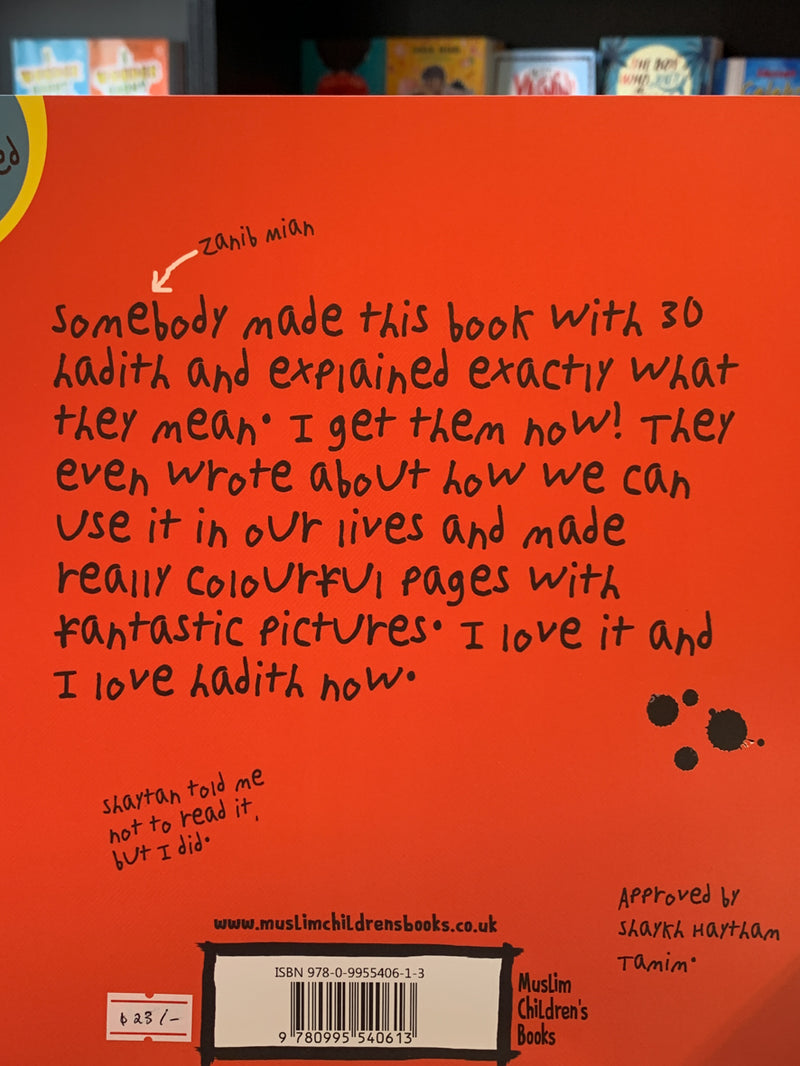 ed
zanib mian
somebody made this book with 30
hadith and explained exactly what
they mean. I get them now! They
even wrote about how we can
use it in our lives and made
really colourful pages with
fantastic pictures. I love it and
I love hadith now.
shaytan told me
not to read it,
but I did.
Approved by
Shaykh Haytham
Tamim.
www.muslimchildrensbooks.co.uk
ISBN 978-0-9955406-1-3
9 780995 540613
Muslim
Children's
Books
23/-